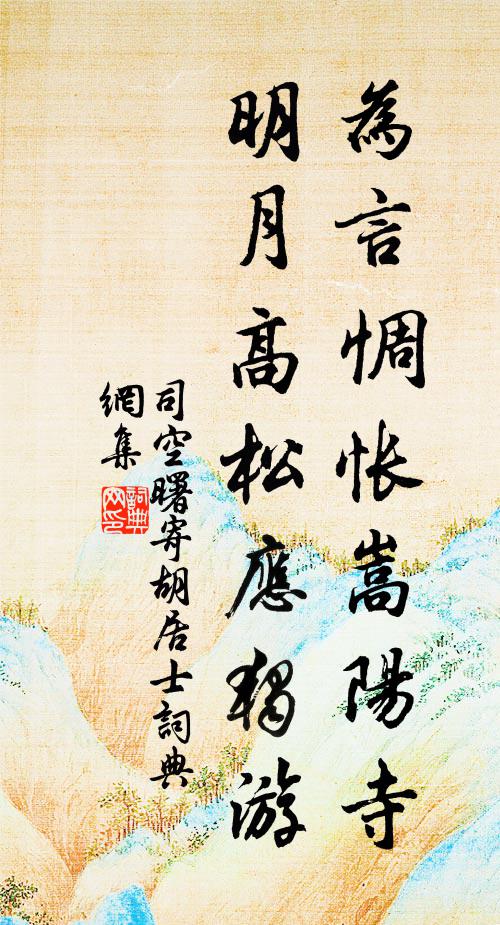 為言惆悵嵩陽寺
明月高松應獨游
司空曙寄胡居士詞典
網集
詞典
网印